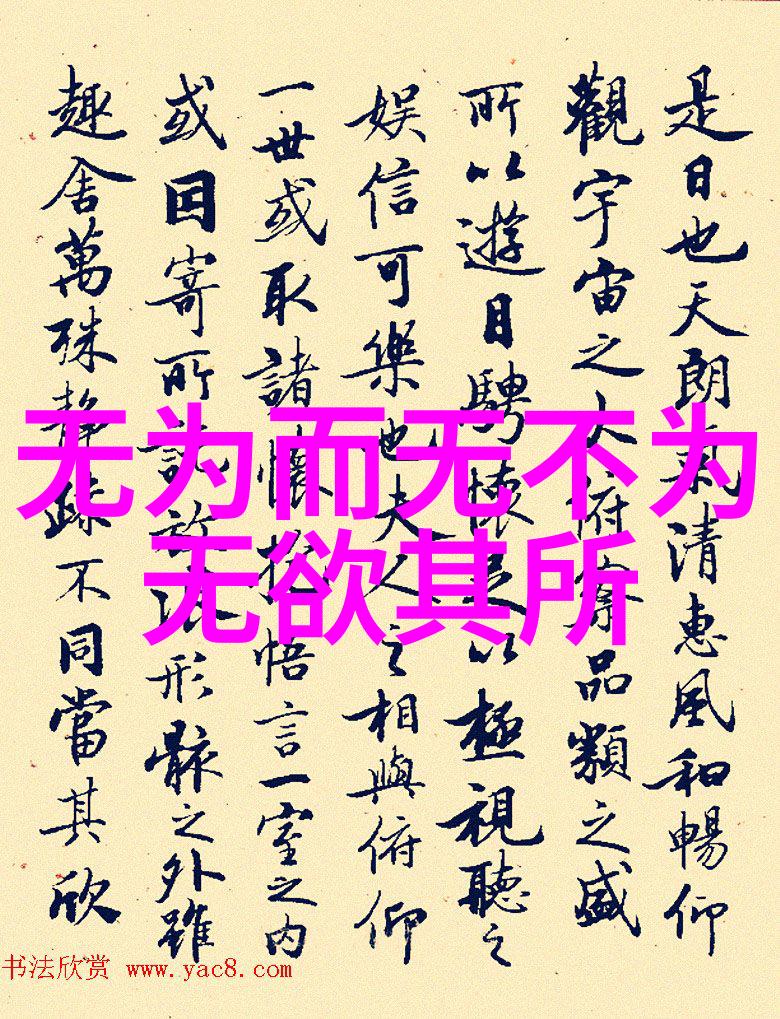 是日也天朗氣清惠風和暢仰
觀宇宙之大俯察品類之盛
所以遊目騁懷足以極視聽之
娱信可樂也夫人之相與俯仰
一世或取諸懷抱悟言一室之内
或因寄所託放浪形骸之外雖
趣舍萬殊静躁不同當其欣
无为而无不为
无欲其所
书法欣赏 www.yac8.com